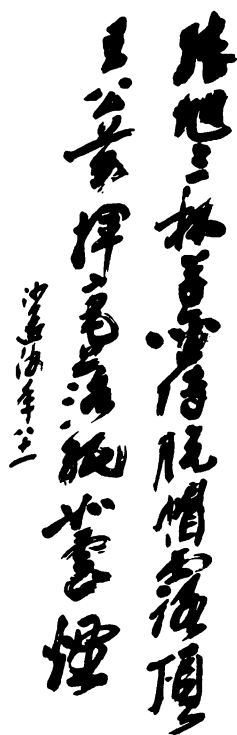 張旭三杯草聖傳脫帽露頂
王公前揮毫落紙如雲煙
沙孟海年八十一